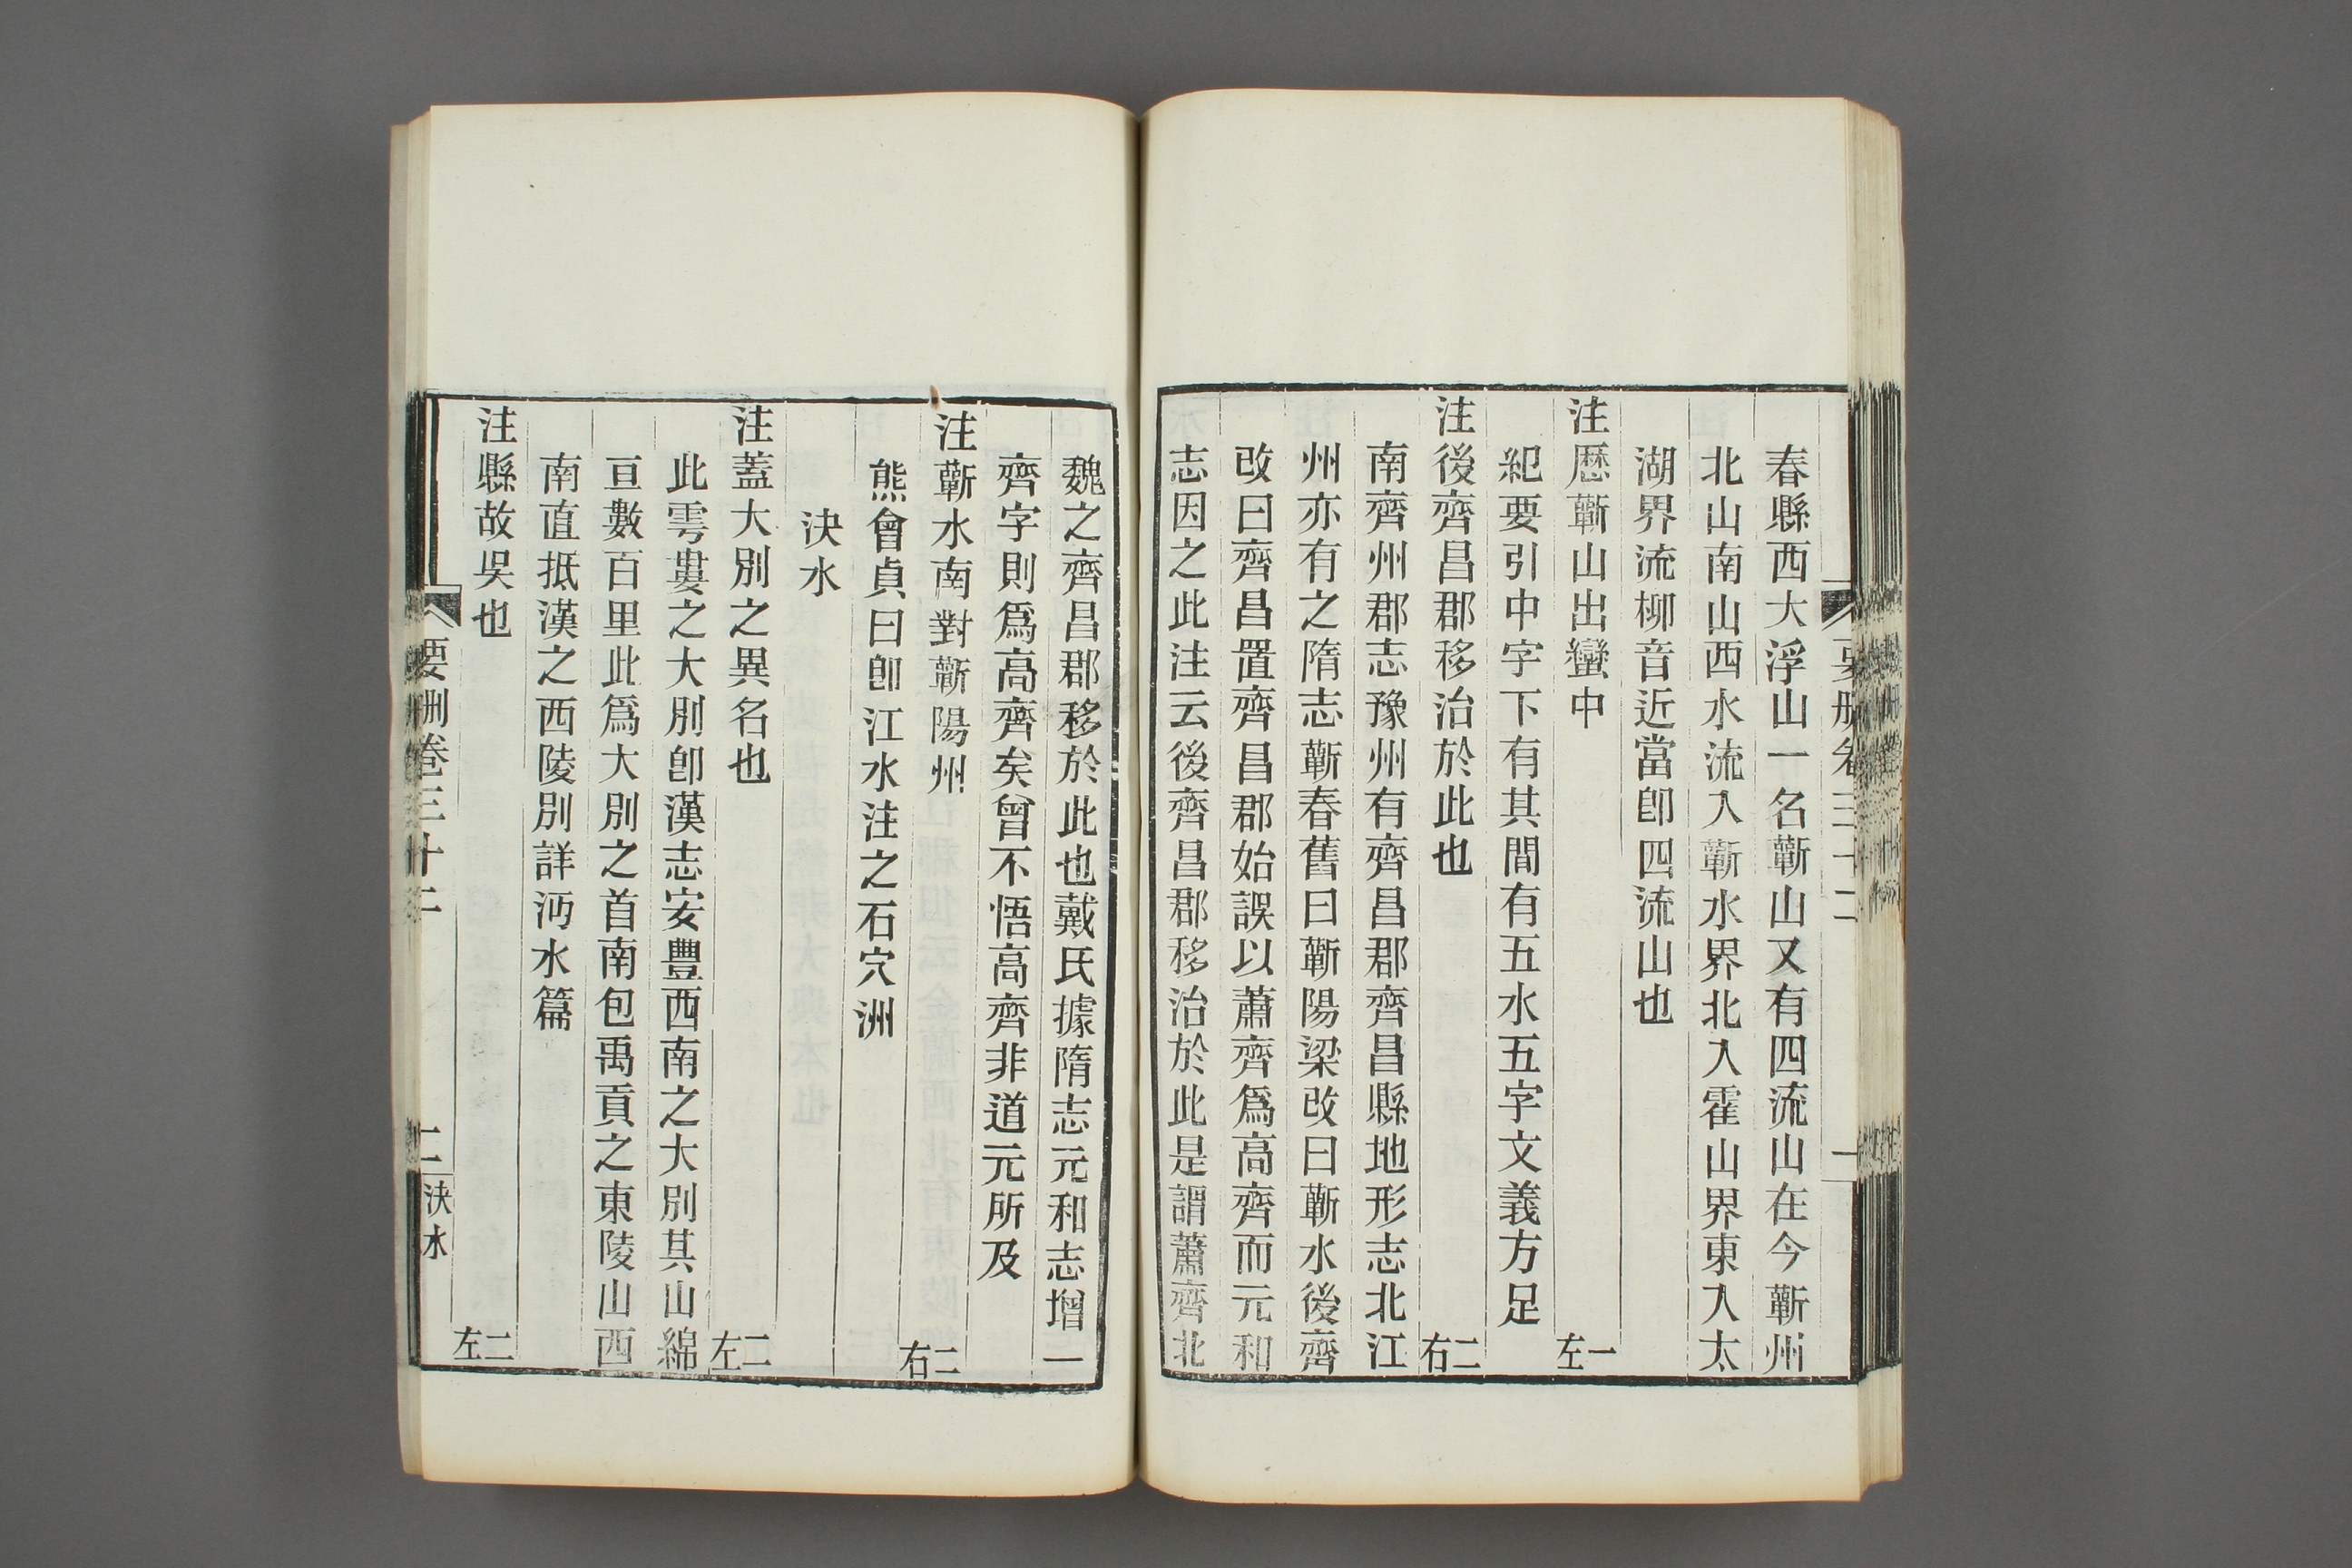 春縣西大浮山一名蘄山又有四流山在今蘄州
北山南山西水流入蘄水界北入霍山界東入太
湖界流柳音近當卽四流山也
注歷蘄山出蠻中　一左
紀要引中字下有其間有五水五字文義方足
注後齊昌郡移治於此也　二右
南齊州郡志豫州有齊昌郡齊昌縣地形志北江
州亦有之隋志蘄春舊曰蘄陽梁改曰蘄水後齊
改曰齊昌置齊昌郡始誤以蕭齊爲高齊而元和
志因之此注云後齊昌郡移治於此是謂蕭齊北
要刪卷三十二　一
魏之齊昌郡移於此也戴氏據隋志元和志增一
齊字則爲高齊矣曾不悟高齊非道元所及
注蘄水南對蘄陽州　二右
熊會貞曰卽江水注之石穴洲
決水
注蓋大別之異名也　二左
此雩婁之大別卽漢志安豐西南之大別其山綿
亘數百里此爲大別之首南包禹貢之東陵山西
南直抵漢之西陵別詳沔水篇
注縣故吳也　二左
要刪卷三十二　二　決水